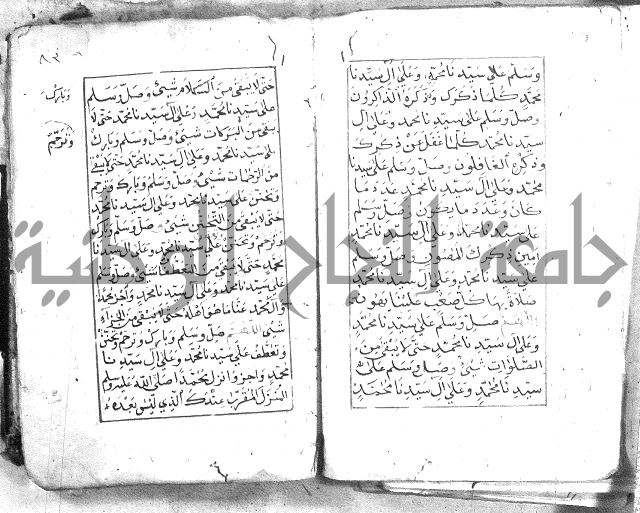 وسلم على سيدنا محمد وعلى آل سيدنا
محمد كلما ذكرك وذكره الذاكرون
وصل وسلم على سيدنا محمد وعلى آل
سيدنا محمد كلما غفل عن ذكرك
وذكره الغافلون وصل وسلم على سيدنا
محمد وعلى آل سيدنا محمد عدد ما
كان وعدد ما يكون وصل وسلم
على سيدنا محمد وعلى آل سيدنا محمد
وصل وسلم
على سيدنا محمد وعلى آل سيدنا محمد
صلاة بها كل صعب علينا يهون
اللهم صل وسلم على سيدنا محمد
وعلى آل سيدنا محمد حتى لا يبقى من
الصلوات شيئ وصل وسلم على
سيدنا محمد وعلى آل سيدنا محمد
٨٣
حتى لا يبقى من السلام شيئ وصل وسلم
وبارك
على سيدنا محمد وعلى آل سيدنا محمد حتى لا
يبقى من البركات شيئ وصل وسلم وبارك
وترحم
على سيدنا محمد وعلى آل سيدنا محمد حتى لا يبقى
من الرحمات شيئ وصل وسلم وبارك وترحم
وتحنن على سيدنا محمد وعلى آل سيدنا محمد
حتى لا يبقى من التحنن شيئ وصل وسلم وبارك
وترحم وتحنن على سيدنا محمد وعلى آل سيدنا
محمد حتى لا يبقى من التعطف شيئ وصل وسلم
على سيدنا محمد وعلى آل سيدنا محمد واجز محمدا
وآل محمد عنا ما هو أهله حتى لا يبقى من الجزاء
شيئ اللهم صل وسلم وبارك وترحم وتحنن
وتعطف على سيدنا محمد وعلى آل سيدنا
محمد واجز وانزل محمدا صلى الله عليه وسلم
المنزل المقرب عندك الذي ليس بعده
جامعة النجاح الوطنية